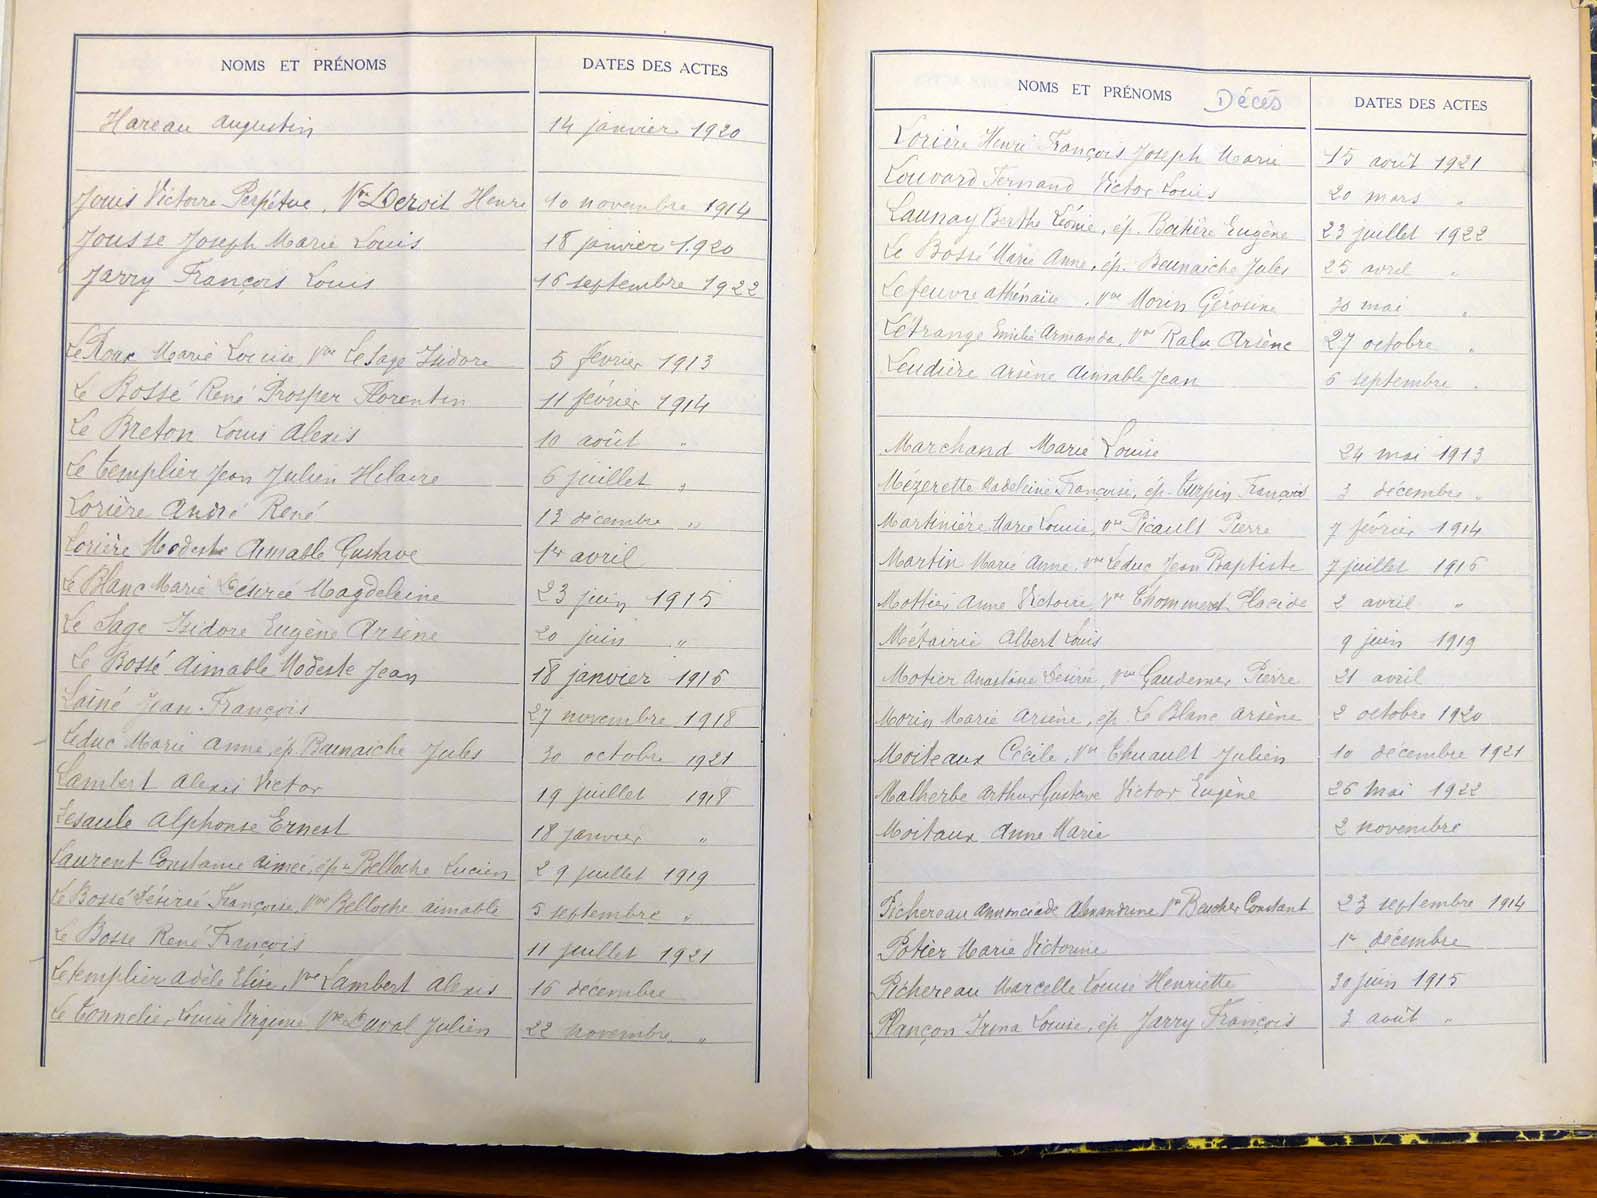 NOMS ET PRÉNOMS DATES DES ACTES
Hareau Augustin 14 janvier 1920
Jouis Victoire Perpétue, Vve Deroit Henri 10 novembre 1914
Jousse Joseph Marie Louis 18 janvier 1920
Jarry François Louis 16 septembre 1922
Le Roux Marie Louise, Vve Le Sage Isidore 5 février 1913
Le Bossé René Prosper Florentin 11 février 1914
Le Breton Louis Alexis 10 août "
Le Templier Jean Julien Hilaire 6 juillet "
Lorière André René 13 décembre "
Lorière Modeste Aimable Gustave 1er avril
Le Blanc Marie Désirée Magdeleine 23 juin 1915
Le Sage Isidore Eugène Arsène 20 juin "
Le Bossé Aimable Modeste Jean 18 janvier 1916
Lainé Jean François 27 novembre 1918
Leduc Marie Anne, ép. Beunaiche Jules 30 octobre 1921
Lambert Alexis Victor 19 juillet 1918
Lesaule Alphonse Ernest 18 janvier "
Laurent Constance Aimée, ép. Belloche Lucien 29 juillet 1919
Le Bossé Désirée Françoise, Vve Belloche Aimable 5 septembre "
Le Bosse René François 11 juillet 1921
Letemplier Adèle Elise, Vve Lambert Alexis 16 décembre
Le Tonnelier Louise Virginie Vve Duval Julien 22 novembre "
NOMS ET PRÉNOMS Décés DATES DES ACTES
Lorière Henri François Joseph Marie 15 août 1921
Louvard Fernand Victor Louis 20 mars "
Launay Berthe Léonie, ép. Eugène 23 juillet 1922
Le Bossé Marie Anne, ép. Beunaiche Jules 25 avril "
Lefeuvre Athénaïse, Vve Morin 30 mai "
Létrange Emilie Armande, Vve Ralu Arsène 27 octobre "
Leudière Arsène Aimable Jean 6 septembre "
Marchand Marie Louise 24 mai 1913
Mézerette Madeleine Françoise, ép. Turpin François 3 décembre "
Martinière Marie Louise, Vve Picault Pierre 7 février 1914
Martin Marie Anne, Vve Leduc Jean Baptiste 7 juillet 1916
Mottier Anne Victoire, Vve Chommeret Placide 2 avril "
Métairie Albert Louis 9 juin 1919
Motier Anastasie Désirée, Vve Gaudemer Pierre 21 avril
Morin Marie Arsène, ép. Le Blanc Arsène 2 octobre 1920
Moiteaux Cécile, Vve Thuault Julien 10 décembre 1921
Malherbe Arthur Gustave Victor Eugène 26 mai 1922
Moitaux Anne Marie 2 novembre
Pichereau Annonciade Alexandrine Vve Constant 23 septembre 1914
Potier Marie Victorine 1er décembre
Pichereau Marcelle Louise Henriette 30 juin 1915
Plançon Irma Louise, ép. Jarry François 3 août "